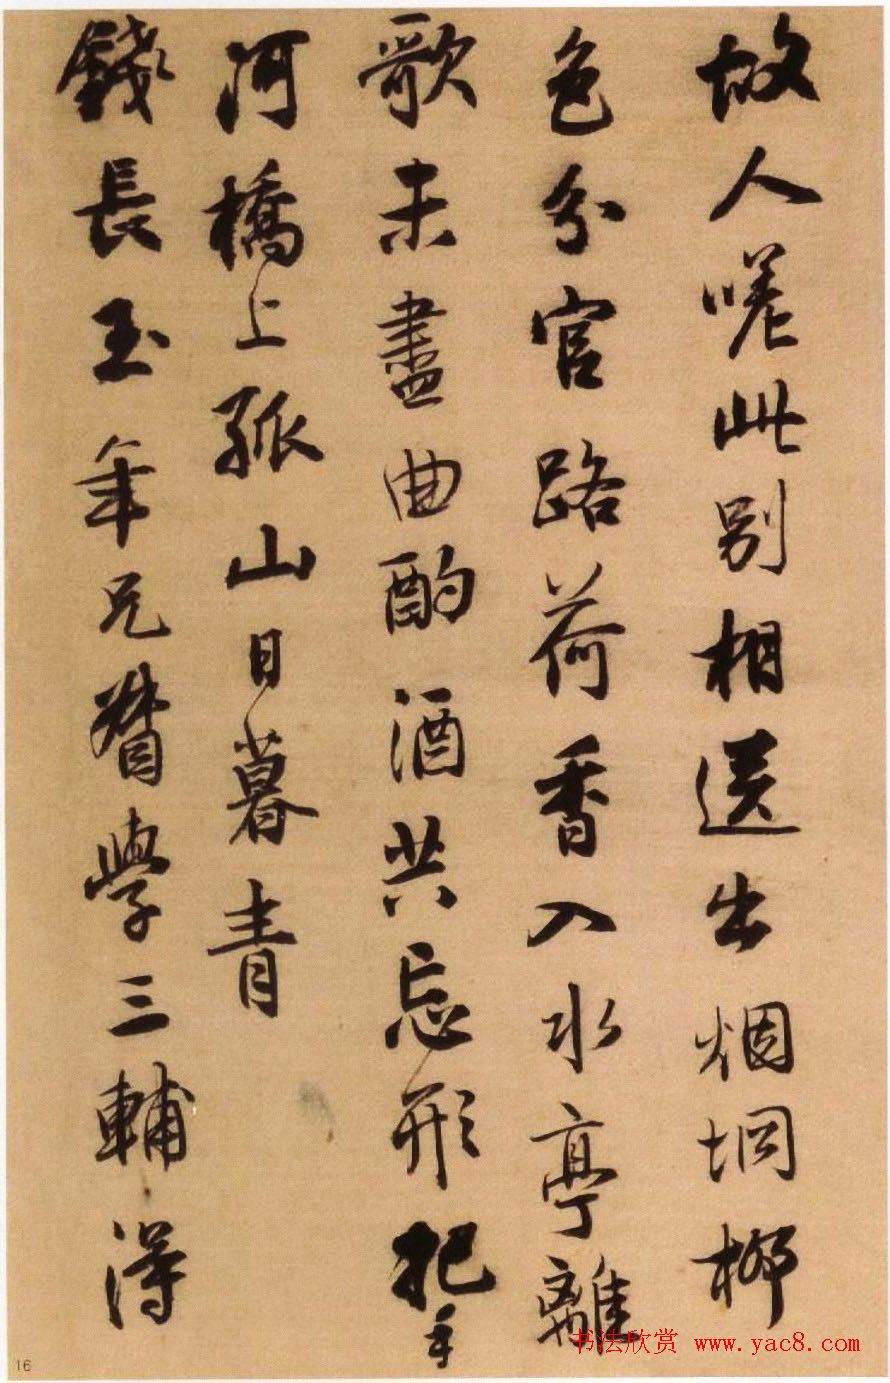 故人嗟此別相送出烟坰柳
色分官路荷香入水亭離
歌未盡曲酌酒共忘形把手
河橋上孤山日暮青
錢長玉年兄督學三輔得
书法欣赏 www.yac8.com
16